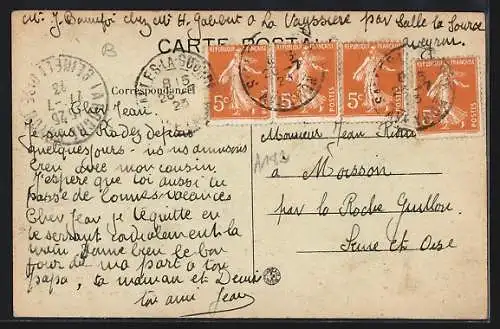 Mr J. Bannfoi chez Mr H. Gabent à La Vayssière par Salle la Source
Aveyron
CARTE POSTALE
REPUBLIQUE FRANÇAISE REPUBLIQUE FRANÇAISE REPUBLIQUE FRANÇAISE REPUBLIQUE FRANÇAISE
5c POSTES 5c POSTES 5c POSTES 5c POSTES
Correspondance
Cher Jean.
Je suis à Rodez depuis
quelques jours - nous nous amusons
bien avec mon cousin.
J'espère que toi aussi tu
passe de bonnes vacances
Cher Jean je te quitte en
te serrant cordialement la
main. Donne bien le bon
jour de ma part à ton
papa, ta maman et Denis
ton ami Jean
Monsieur Jean
à Moisson
par la Roche Guillon
Seine et Oise